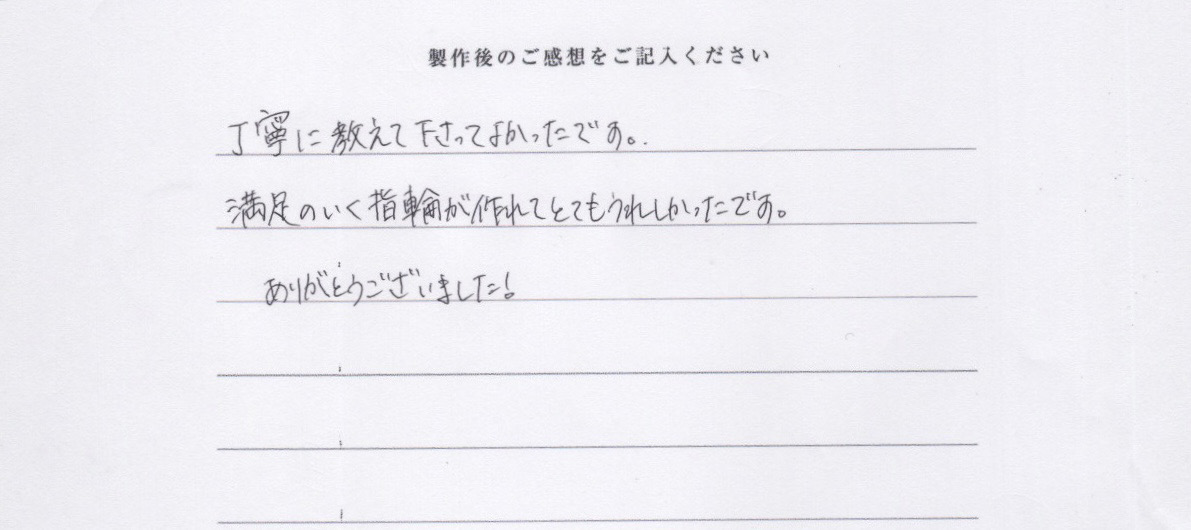 製作後のご感想をご記入ください
丁寧に教えて下さってよかったです。
満足のいく指輪が作れてとてもうれしかったです。
ありがとうございました!